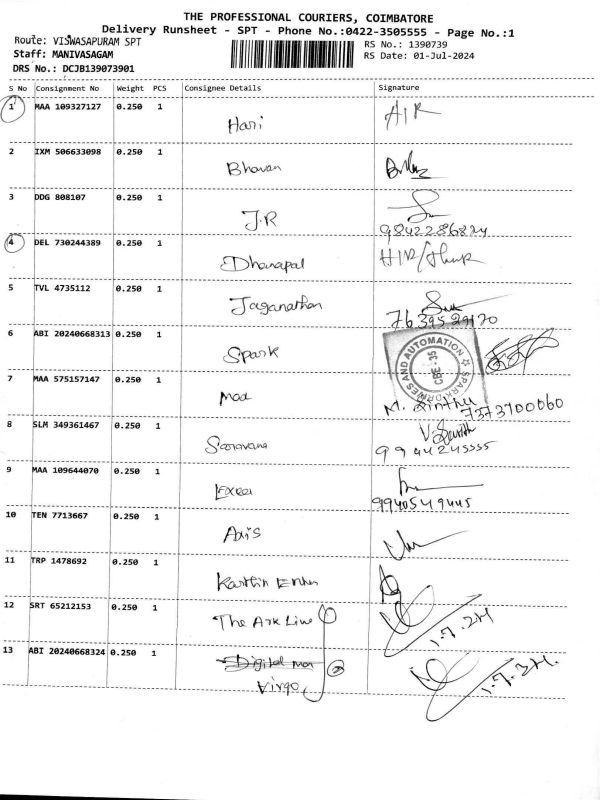 THE PROFESSIONAL COURIERS, COIMBATORE
Delivery Runsheet - SPT - Phone No.:0422-3505555 - Page No.:1
Route: VISWASAPURAM SPT
RS No.: 1390739
Staff: MANIVASAGAM
RS Date: 01-Jul-2024
DRS No.: DCJB139073901
S No Consignment No Weight PCS Consignee Details Signature
1 MAA 109327127 0.250 1 Hari
2 IXM 506633098 0.250 1 Bhavan
3 DDG 808107 0.250 1 J.R
9842286824
4 DEL 730244389 0.250 1 Dhanapal
5 TVL 4735112 0.250 1 Jaganathan
7639529170
6 ABI 20240668313 0.250 1 Spark
SPARK DRIVES AND AUTOMATION
CBE-35
7 MAA 575157147 0.250 1 Maa
M.
7373700060
8 SLM 349361467 0.250 1 Saravana
9944245555
9 MAA 109644070 0.250 1 Excel
9940549445
10 TEN 7713667 0.250 1 Axis
11 TRP 1478692 0.250 1 Karthin
12 SRT 65212153 0.250 1 The Ark Line
1.7.24
13 ABI 20240668324 0.250 1 Digital
Virgo
1.7.24.